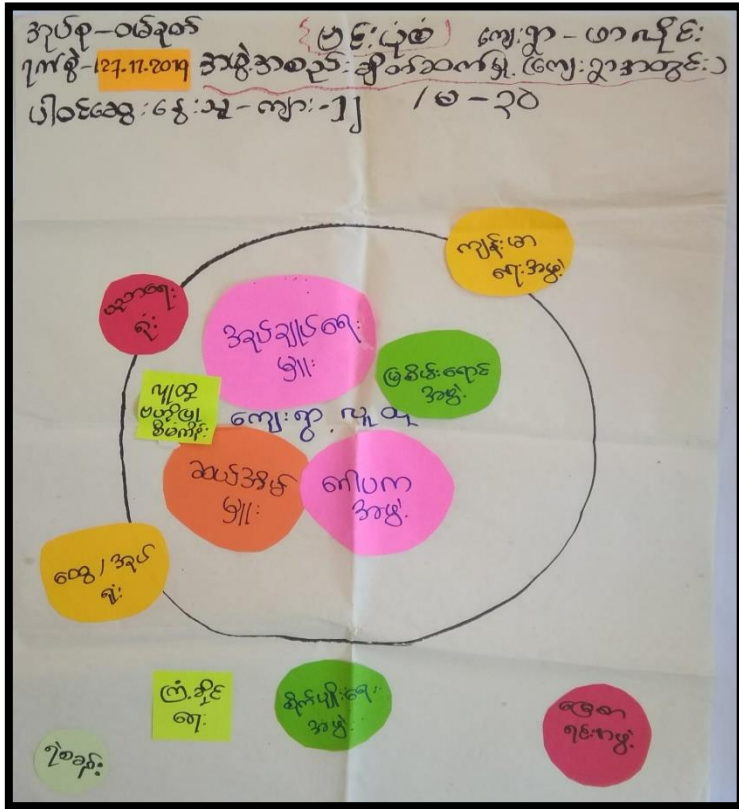 အုပ်စု-ဝမ်ခုတ် {ဗင်းပုံစံ} ကျေးရွာ-ဟာလိုင်း
ရက်စွဲ-27.11.2019 အဖွဲ့အစည်းချိတ်ဆက်မှု (ကျေးရွာအတွင်း)
ပါဝင်ဆွေးနွေးသူ-ကျား-၅၂ /မ-၃၀
ကျန်းမာ
ရေးအဖွဲ့
ပညာရေး
ရုံး
အုပ်ချုပ်ရေး
မှူး
မြစိမ်းရောင်
အဖွဲ့
လူထု
ဗဟိုပြု
စီမံကိန်း
ကျေးရွာ လူထု
ဆယ်အိမ်
မှူး
စာပက
အဖွဲ့
ထွေ/အုပ်
ရုံး
ကြံ့ခိုင်
ရေး
စိုက်ပျိုးရေး
အဖွဲ့
ရင်းအဖွဲ့
ရဲစခန်း